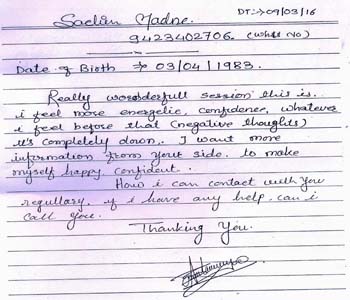 DT:→09/03/16
Sachin Madne.
9423402706. (What No)
Date of Birth → 03/04/1983.
Really woonderfull session this is.
i feel more energetic, confidence, whatever
i feel before that (negative thoughts)
it's completely down. I want more
information from your side. to make
myself happy, confident.
How i can contact with you
regullary. if i have any help can i
call you.
Thanking You.